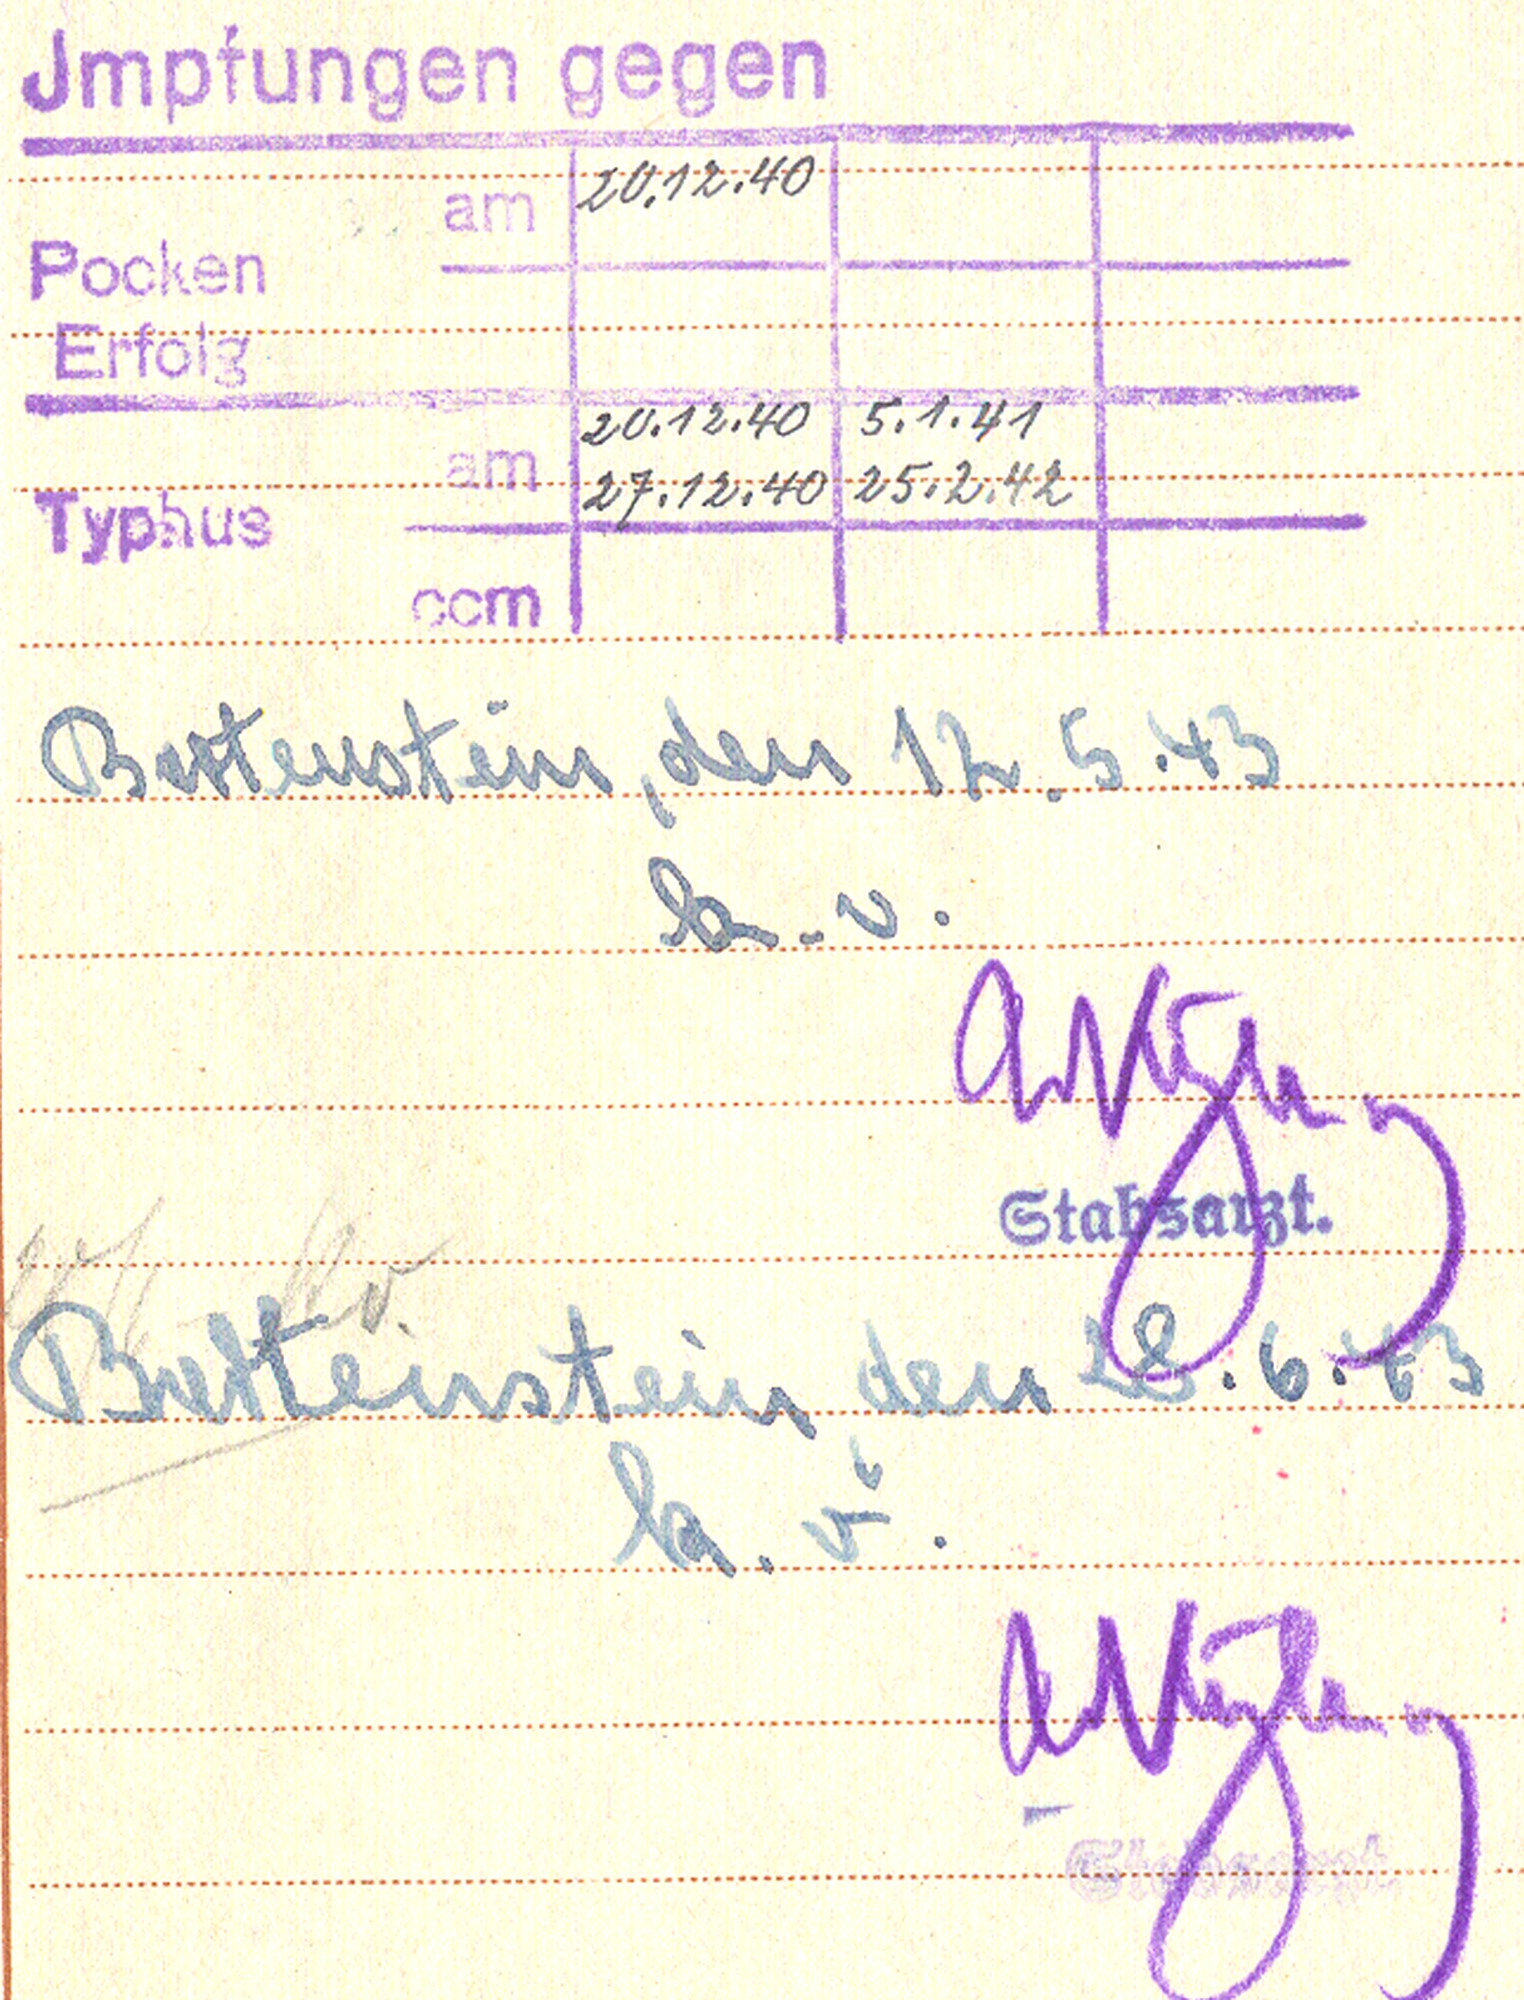 Jmpfungen gegen
am 20.12.40
Pocken
Erfolg
20.12.40 5.1.41
am
27.12.40 25.2.42
Typhus
ccm
Bartenstein, den 12.5.43
k.v.
Stabsarzt.
kv
Bartenstein den 28.6.43
k.v.
Stabsarzt.